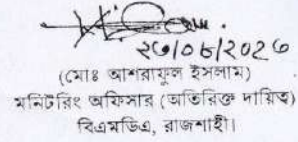 ২৩/০৮/২০২৩
(মোঃ আশরাফুল ইসলাম)
মনিটরিং অফিসার (অতিরিক্ত দায়িত্ব)
বিএমডিএ, রাজশাহী।